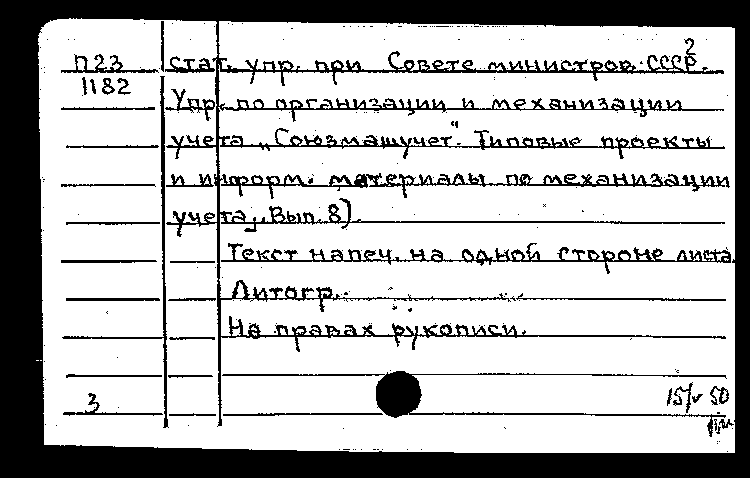 2
П23 стат. упр. при Совете министров СССР.
1182
Упр. по организации и механизации
учета „Союзмашучет". Типовые проекты
и информ. материалы по механизации
учета, Вып. 8).
Текст напеч. на одной стороне листа.
Литогр.
На правах рукописи.
3
15/V 50